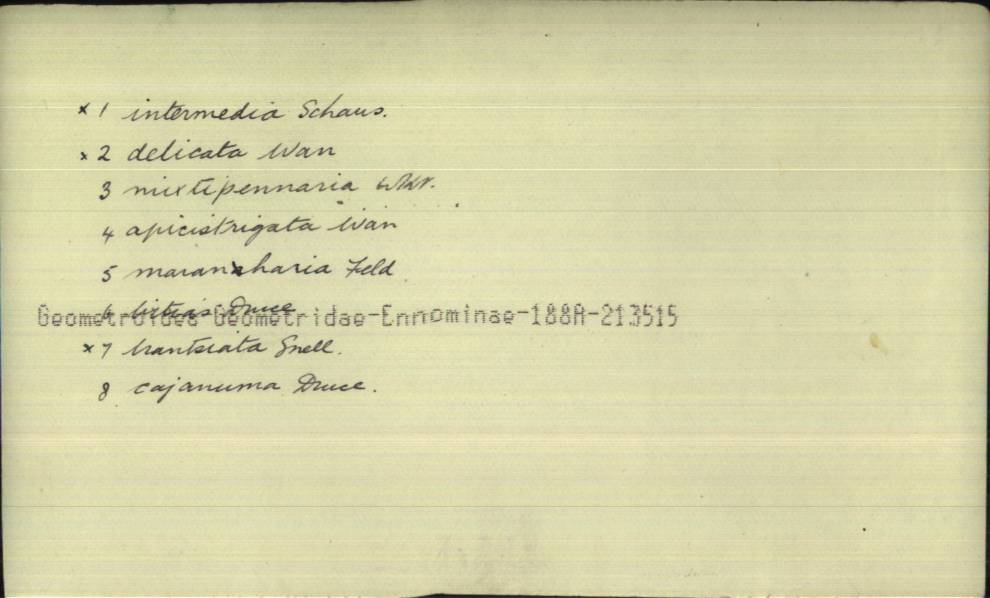 x 1 intermedia Schaus.
x 2 delicata Warr
3 mixtipennaria Wkr.
4 apicistrigata Warr
5 maranhharia Feld
6 Druce
Geometroidea Geometridae-Ennominae-188A-213515
x 7 Snell.
8 cajanuma Druce.